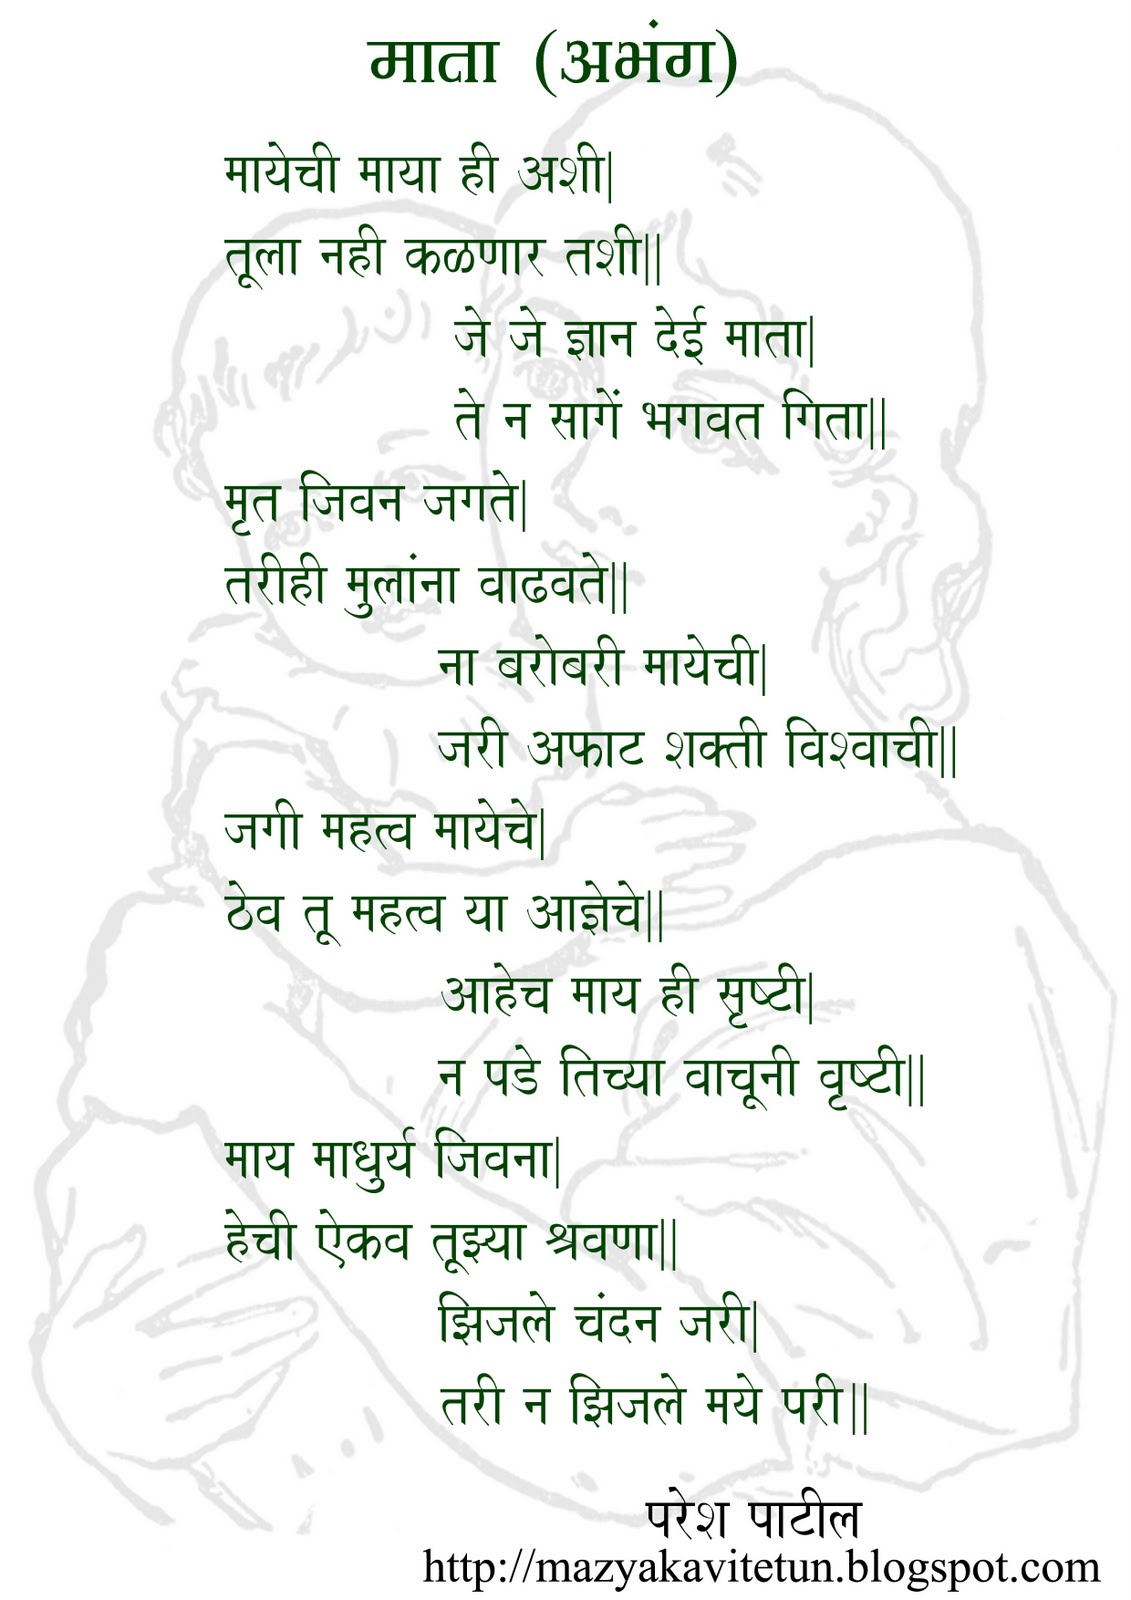 माता (अभंग)
मायेची माया ही अशी|
तूला नही कळणार तशी||
जे जे ज्ञान देई माता|
ते न सागें भगवत गिता||
मृत जिवन जगते|
तरीही मुलांना वाढवते||
ना बरोबरी मायेची|
जरी अफाट शक्ती विश्वाची||
जगी महत्व मायेचे|
ठेव तू महत्व या आज्ञेचे||
आहेच माय ही सृष्टी|
न पडे तिच्या वाचूनी वृष्टी||
माय माधुर्य जिवना|
हेची ऐकव तूझ्या श्रवणा||
झिजले चंदन जरी|
तरी न झिजले मये परी||
परेश पाटील
http://mazyakavitetun.blogspot.com